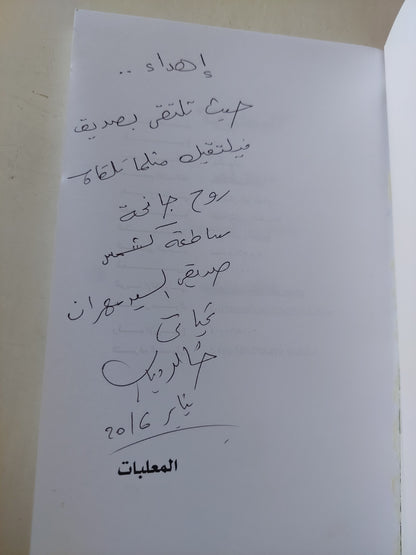 إهداء ..
حيث تلتقي بصديق
فيلتقيك مثلما تلقاه
روح جانحة
ساطعة كشمس
صديقي السيد مهران
تحياتي
خالد
يناير 2016
المعلبات